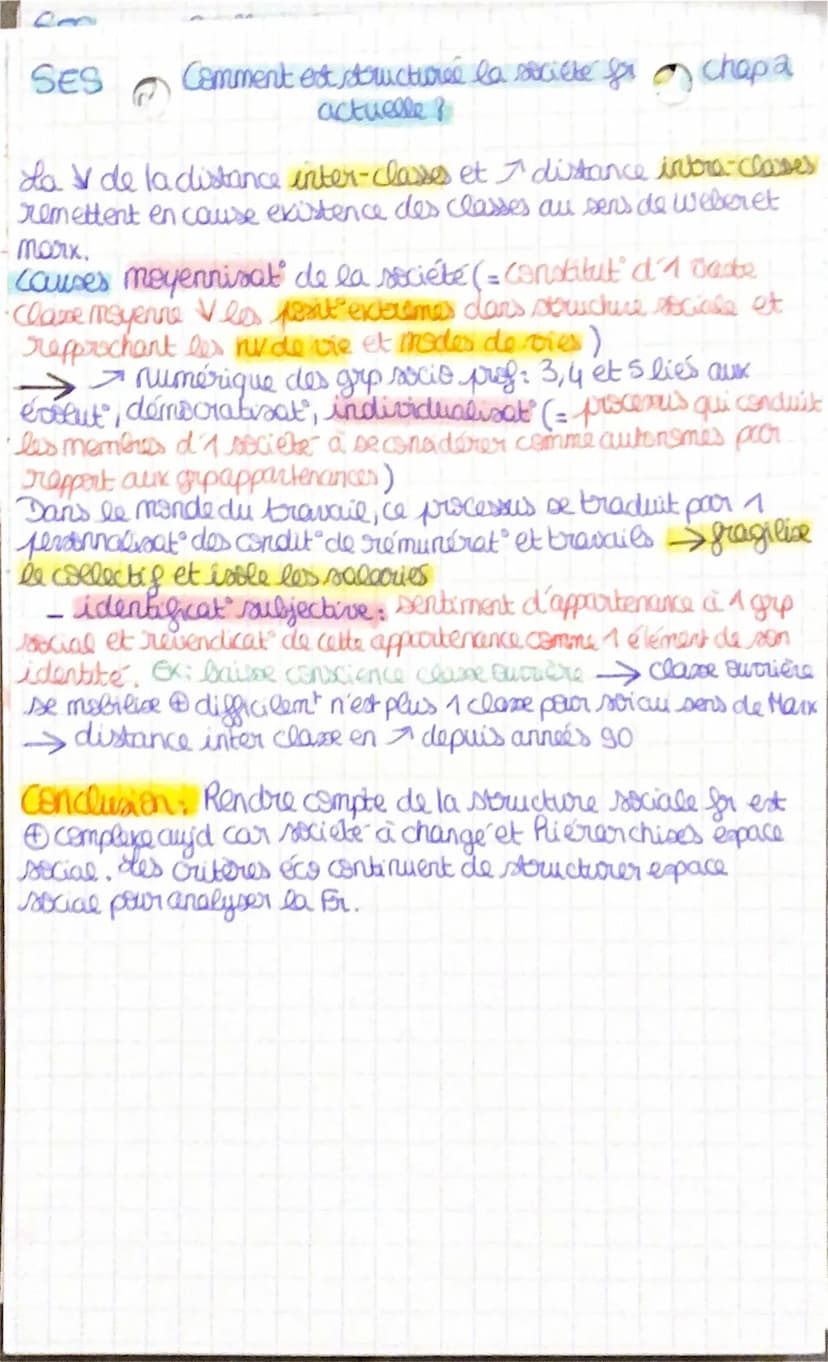 SES Comment est structurée la société fr chap 2
actuelle ?
La ↓ de la distance inter-classes et ↗ distance intra-classes
remettent en cause existence des classes au sens de Weber et
Marx.
Causes moyennisat° de la société (= constitut° d'1 vaste
classe moyenne ↓ les posit° extrêmes dans structure sociale et
rapprochant les nv de vie et modes de vies)
→ ↗ numérique des grp socio prof : 3, 4 et 5 liés aux
évolut°, démocratisat°, individualisat° (= processus qui conduit
les membres d'1 société à se considérer comme autonomes par
rapport aux grp appartenances)
Dans le monde du travail, ce processus se traduit par 1
personnalisat° des condit° de rémunérat° et travails → fragilise
le collectif et isole les salariés
- identificat° subjective : sentiment d'appartenance à 1 grp
social et revendicat° de cette appartenance comme 1 élément de son
identité. Ex : baisse conscience classe ouvrière → classe ouvrière
se mobilise ⊕ difficilemt n'est plus 1 classe pour soi au sens de Marx
→ distance inter classe en ↗ depuis années 90
Conclusion : Rendre compte de la structure sociale fr est
⊕ complexe aujd car société à changé et hiérarchises espace
social. Les critères éco continuent de structurer espace
social pour analyser la Fr.